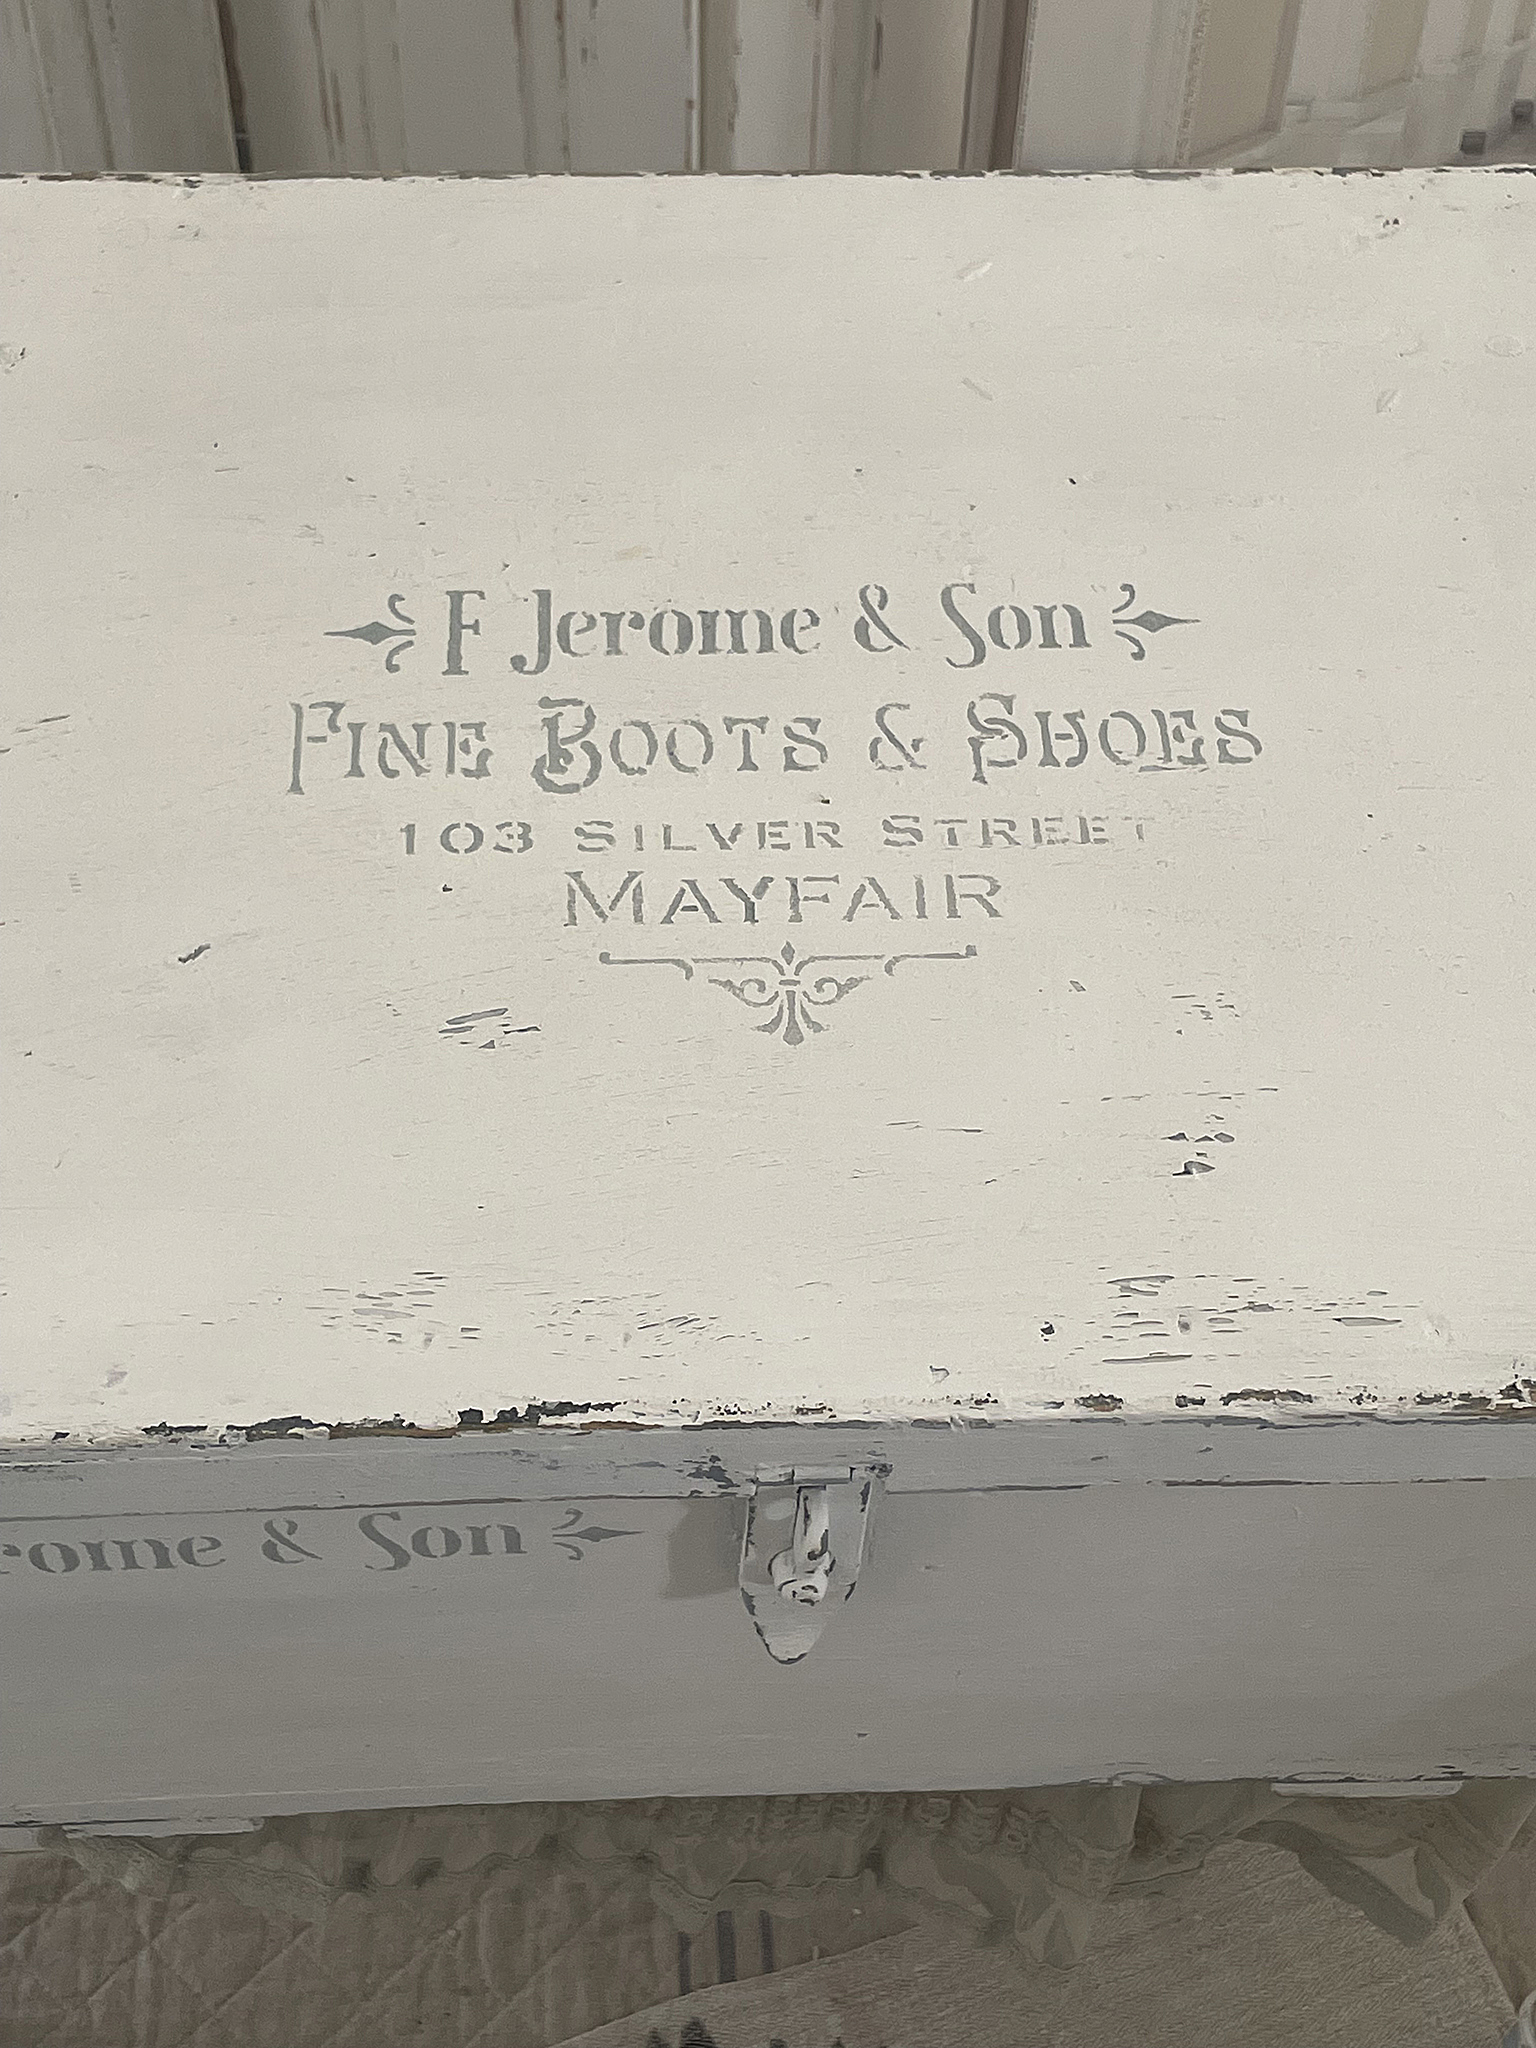 F Jerome & Son
FINE BOOTS & SHOES
103 SILVER STREET
MAYFAIR
rome & Son